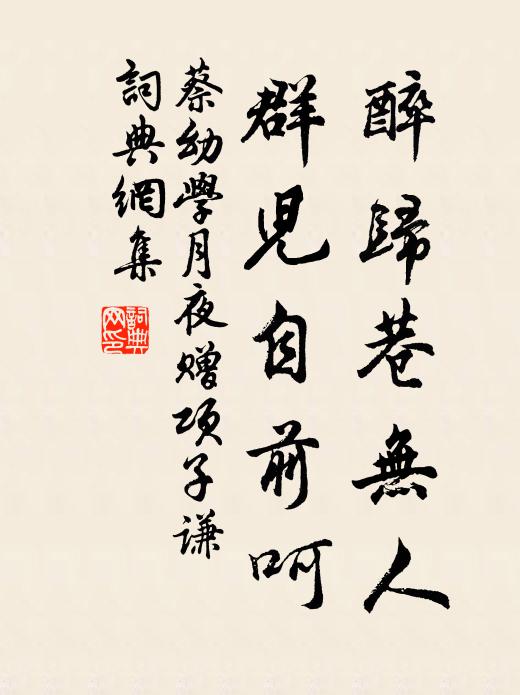 醉歸巷無人
群児自前呵
蔡幼學月夜贈項子谦
詞典網集
詞典網印